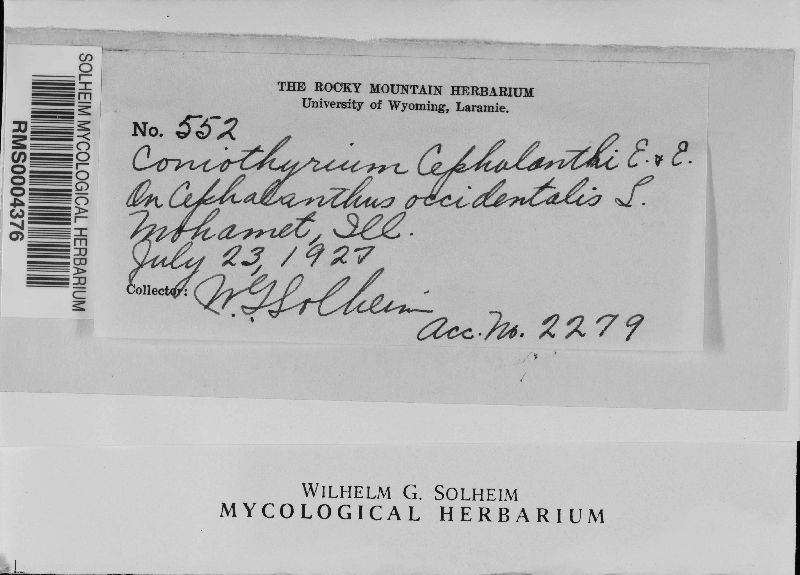 SOLHEIM MYCOLOGICAL HERBARIUM
RMS0004376
THE ROCKY MOUNTAIN HERBARIUM
University of Wyoming, Laramie.
No. 552
Coniothyrium Cephalanthi E. & E.
On Cephalanthus occidentalis L.
Mohamet, Ill.
July 23, 1927
Collector: W.G. Solheim
Acc. No. 2279
WILHELM G. SOLHEIM
MYCOLOGICAL HERBARIUM